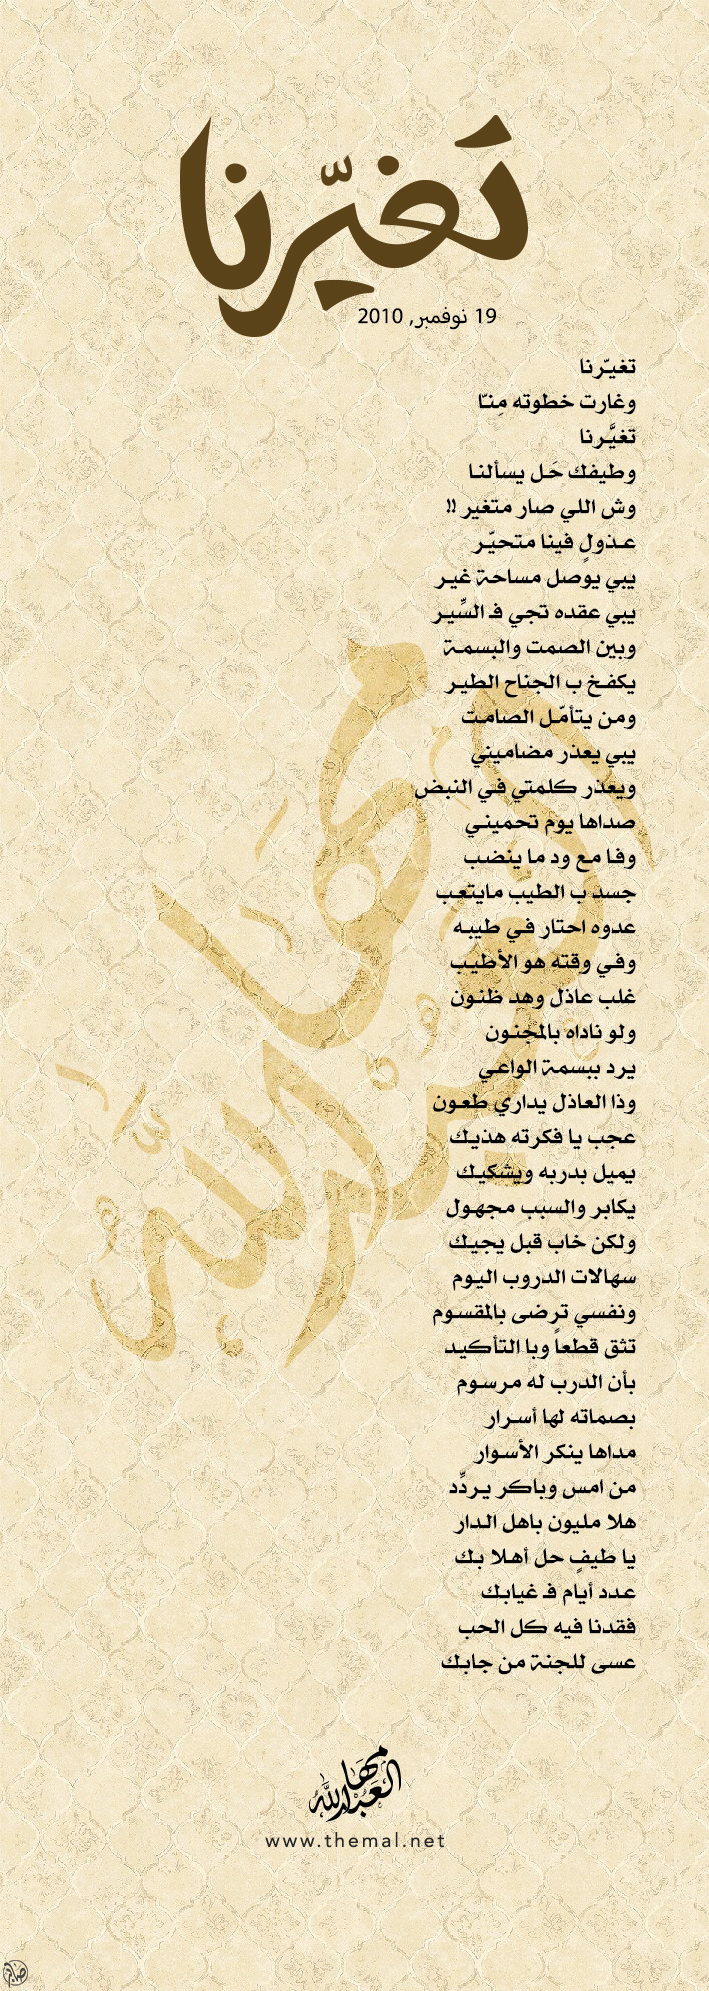 تَغيّرنا
19 نوفمبر, 2010
تغيـّرنا
وغارت خطوته مِنـّا
تَغيَّـرنا
وطيفك حَـل يسألنـا
وش اللي صار متغير !!
عـذولٍ فينا متحيّـر
يبي يوصل مساحة غيـر
يبي عقده تجي فـ السِّيـر
وبين الصمت والبسمـة
يكفـخ ب الجناح الطيـر
ومن يتأمّـل الصامـت
يبي يعذر مضاميني
ويعذر كلمتي في النبض
صداها يوم تحمينـي
وفـا مع ود ما ينضب
جسد ب الطيب مايتعب
عدوه احتار فـي طيبـه
وفـي وقته هو الأطيـب
غلب عاذل وهد ظنـون
ولو ناداه بالمجنـون
يرد ببسمة الواعـي
وذا العاذل يداري طعـون
عجب يا فكرته هذيـك
يميل بدربه ويشكيـك
يكابر والسبب مجهـول
ولكن خاب قبل يجيـك
سهالات الدروب اليوم
ونفسي ترضى بالمقسـوم
تثق قطعاً وبا التأكيـد
بأن الدرب له مرسـوم
بصماته لها أسـرار
مداها ينكر الأسـوار
من امس وباكر يـردِّد
هلا مليون باهل الـدار
يا طيفٍ حل أهـلا بـك
عـدد أيام فـ غيابـك
فقدنا فيه كل الحب
عسى للجنة من جابـك
مها العبدالله
www.themal.net